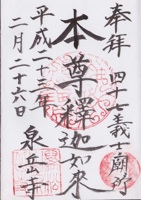 奉拝 四十七義士廟所
本尊釋迦如来
平成二十三年
二月二十六日
泉岳寺